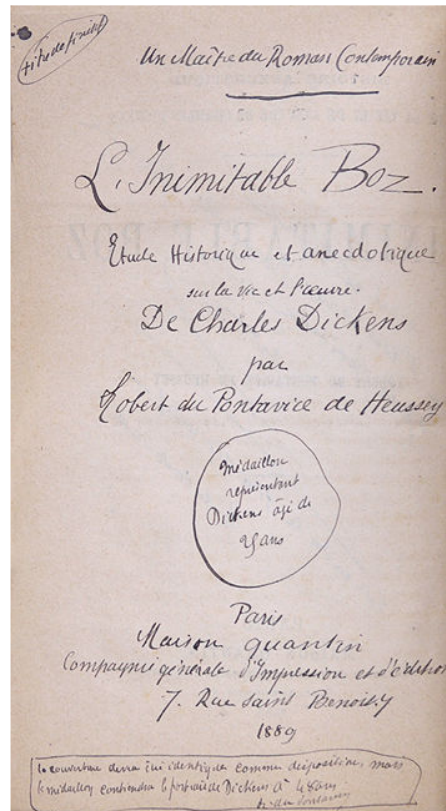 titre définitif
Un Maître du Roman Contemporain
L'Inimitable Boz.
Etude Historique et anecdotique
sur la vie et l'œuvre.
De Charles Dickens
par
Robert du Pontavice de Heussey
Médaillon
représentant
Dickens âgé de
25 ans
Paris
Maison quantin
Compagnie générale d'Impression et d'édition
7. Rue Saint Benoit. 7
1889
la couverture devra être identique comme disposition, mais
le médaillon contiendra le portrait de Dickens à ans